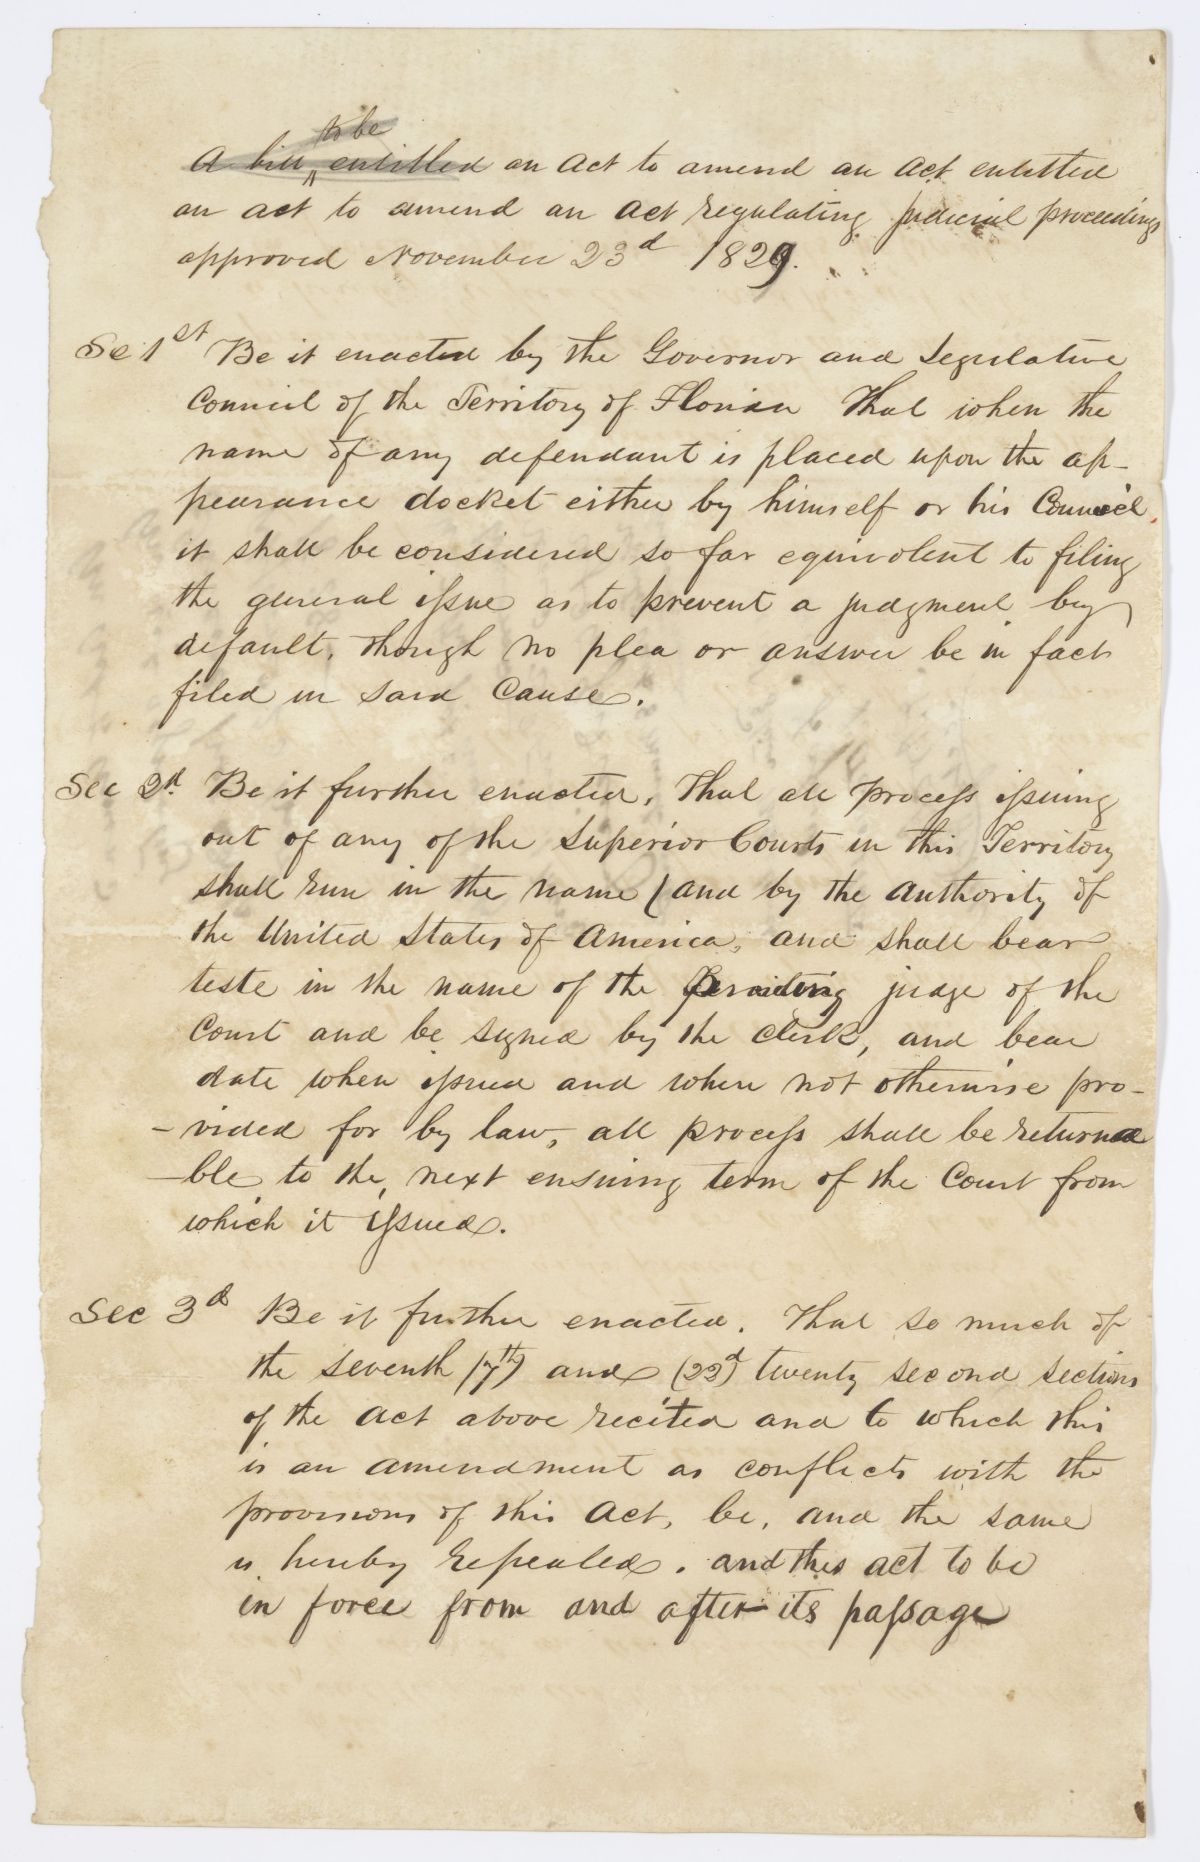 A bill ^ to be entitled an Act to amend an Act entitled
an act to amend an Act regulating judicial proceedings
approved November 23d 1829.
Sec 1st Be it enacted by the Governor and Legislative
Council of the Territory of Florida That when the
name of any defendant is placed upon the ap-
pearance docket either by himself or his Council
it shall be considered so far equivolent to filing
the general issue as to prevent a judgment by
default, though no plea or answer be in fact
filed in said Cause.
Sec 2d. Be it further enacted, That all process issuing
out of any of the Superior Courts in this Territory
shall run in the name (and by the authority of
the United States of America, and shall bear
teste in the name of the presiding judge of the
Court and be signed by the Clerk, and bear
date when issued and when not otherwise pro-
-vided for by law, all process shall be returna
-ble to the, next ensuing term of the Court from
which it issued.
Sec 3d Be it further enacted. That so much of
the seventh (7th) and (22d) twenty second sections
of the Act above recited and to which this
is an amendment as conflicts with the
provisions of this Act, be, and the same
is hereby repealed. and this act to be
in force from and after its passage